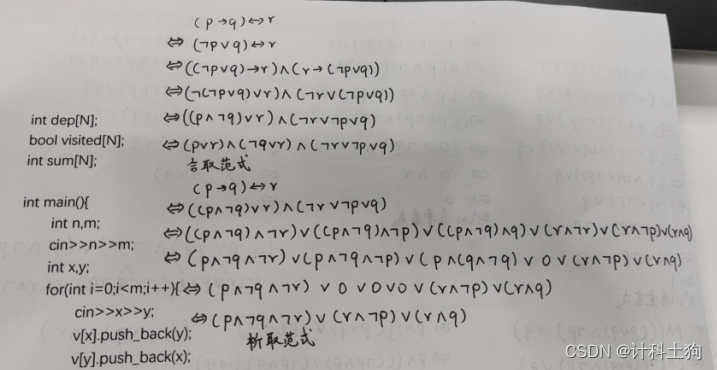 (p→q)↔r
⇔(¬p∨q)↔r
⇔((¬p∨q)→r)∧(r→(¬p∨q))
⇔(¬(¬p∨q)∨r)∧(¬r∨(¬p∨q))
int dep[N]; ⇔((p∧¬q)∨r)∧(¬r∨¬p∨q)
bool visited[N]; ⇔(p∨r)∧(¬q∨r)∧(¬r∨¬p∨q)
int sum[N]; 言取范式
(p→q)↔r
int main(){ ⇔((p∧¬q)∨r)∧(¬r∨¬p∨q)
int n,m; ⇔((p∧¬q)∧¬r)∨((p∧¬q)∧¬p)∨((p∧¬q)∧q)∨(r∧¬r)∨(r∧¬p)∨(r∧q)
cin>>n>>m; ⇔(p∧¬q∧¬r)∨(p∧¬q∧¬p)∨(p∧(q∧¬q)∨0∨(r∧¬p)∨(r∧q)
int x,y;
for(int i=0;i<m;i++){ ⇔(p∧¬q∧¬r)∨0∨0∨0∨(r∧¬p)∨(r∧q)
cin>>x>>y; ⇔(p∧¬q∧¬r)∨(r∧¬p)∨(r∧q)
v[x].push_back(y); 析取范式
v[y].push_back(x);
CSDN @计科土狗